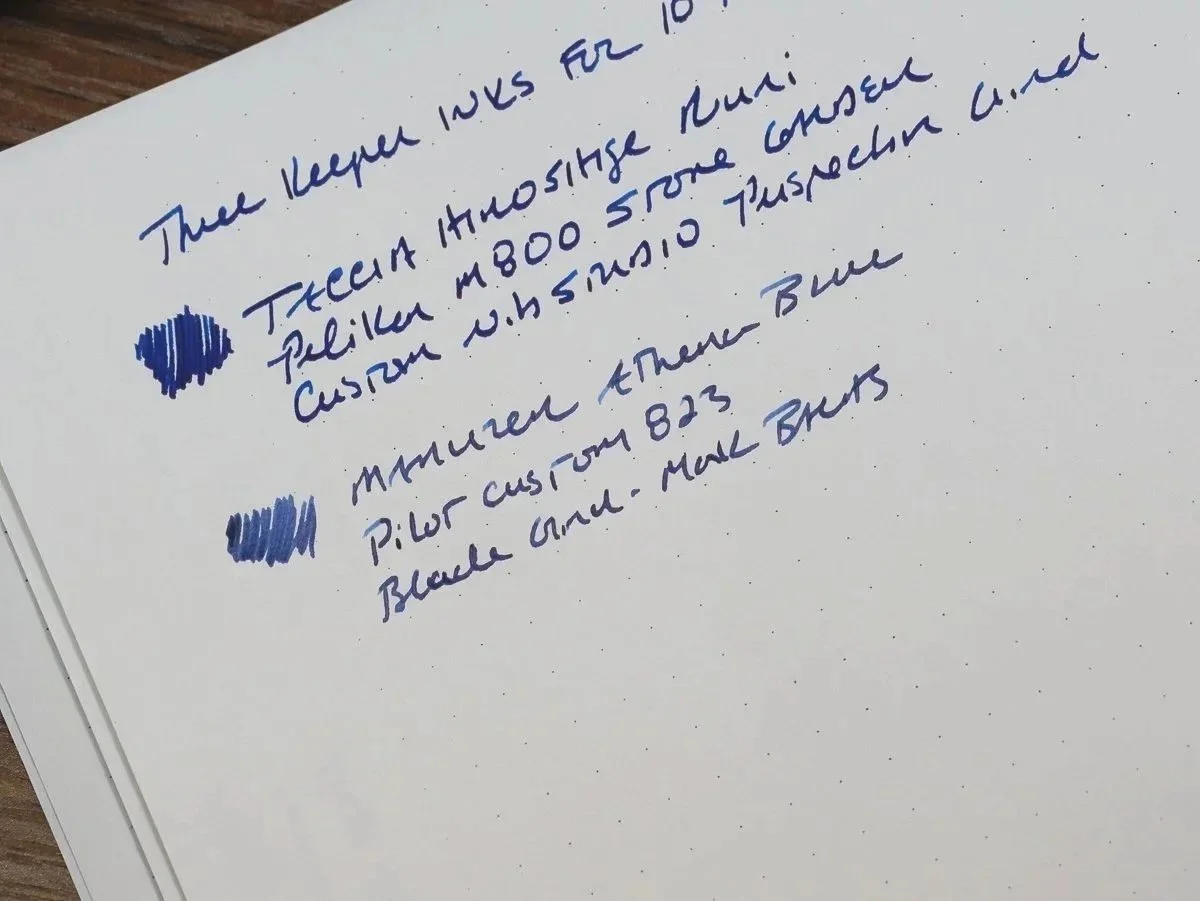 Three Keeper inks for 10
TACCIA HIROSHIGE Ruri
Pelikan M800 STONE GARDEN
Custom nib STUDIO Perspective Grind
MARUZEN Athena Blue
Pilot custom 823
Blade Grind - Mark BACAS